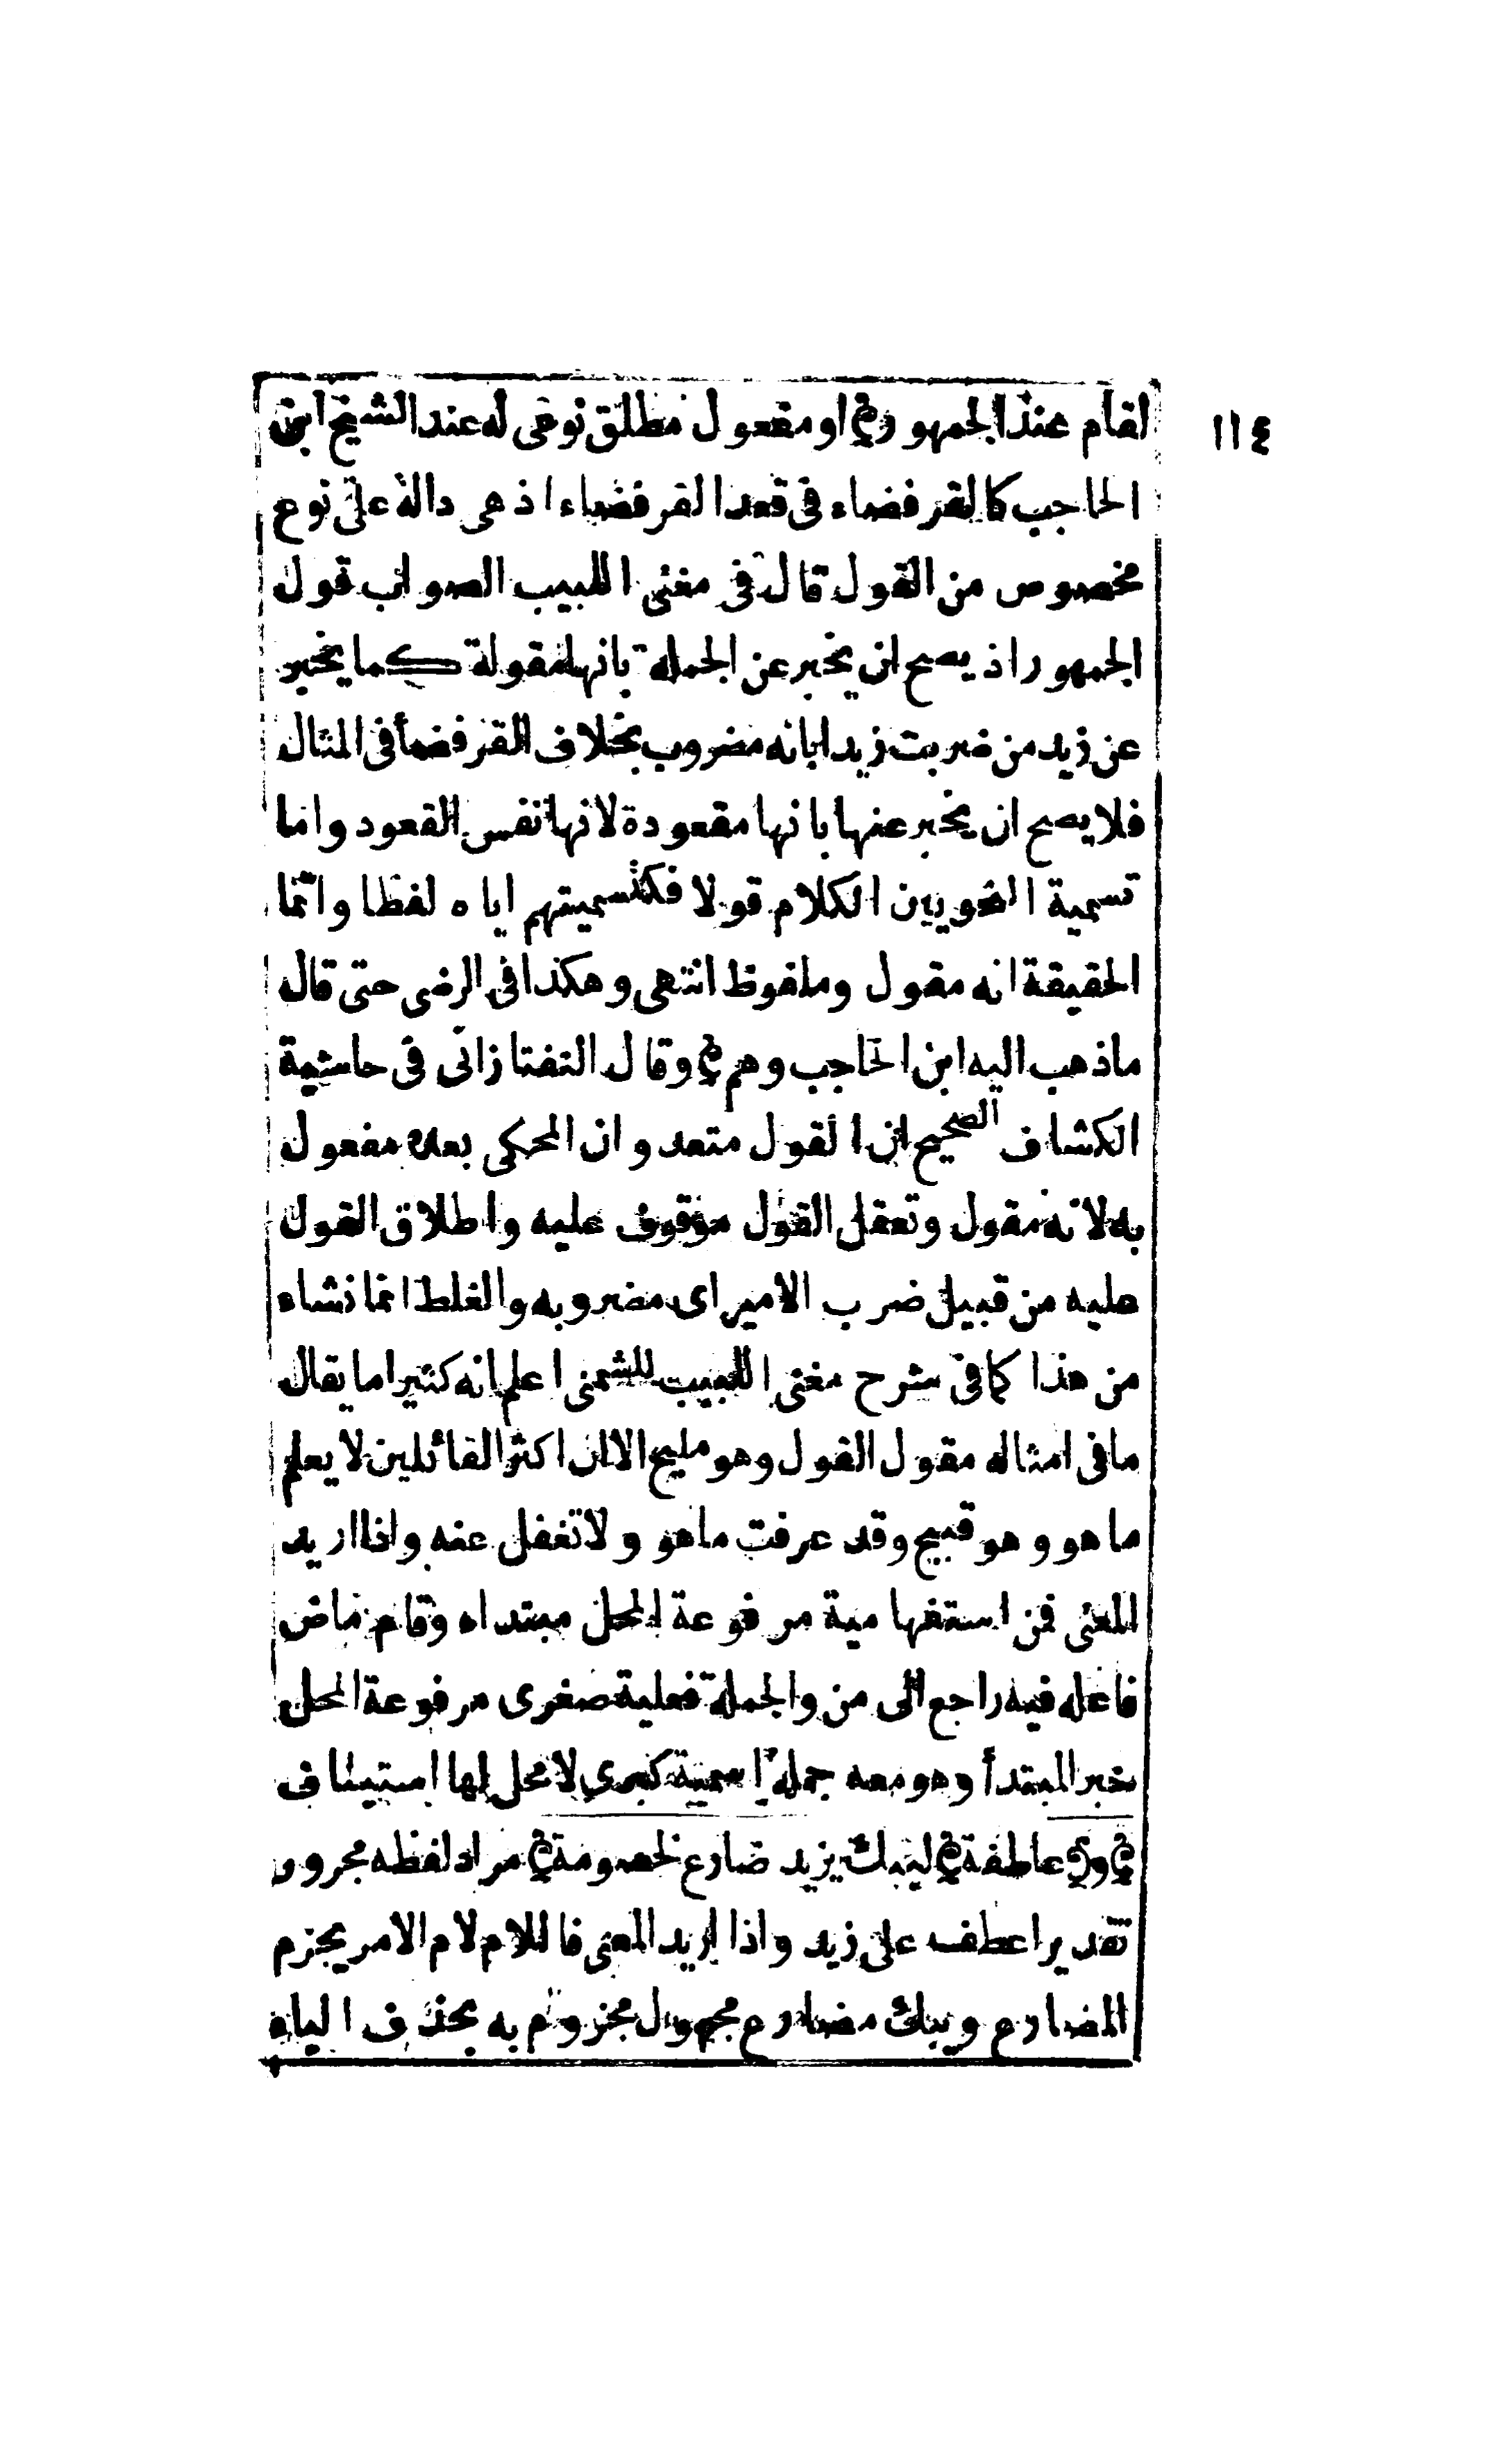 ١١٤
لقام عند الجمهور ۞ او مفعول مطلق نوعى له عند الشيخ ابن
الحاجب كالقرفضاء فى قعد القرفضاء اذ هى دالة على نوع
مخصوص من القول قال فى مغنى اللبيب الصواب قول
الجمهور اذ يصح ان يخبر عن الجملة بانها مقولة كما يخبر
عن زيد من ضربت زيدا بانه مضروب بخلاف القرفضأ فى المثال
فلا يصح ان يخبر عنها بانها مقعودة لانها نفس القعود واما
تسمية النحويين الكلام قولا فكتسميتهم اياه لفظا وانما
الحقيقة انه مقول وملفوظ انتهى وهكذا فى الرضى حتى قال
ماذهب اليه ابن الحاجب وهم ۞ وقال التفتازانى فى حاشية
الكشاف الصحيح ان القول متعد وان المحكى بعده مفعول
به لانه مقول وتعقل القول موقوف عليه واطلاق القول
عليه من قبيل ضرب الامير اى مضروبه والغلط انما نشاء
من هذا كما فى شرح مغنى اللبيب للشمنى اعلم انه كثيرا ما يقال
ما فى امثاله مقول القول وهو مليح الا ان اكثر القائلين لا يعلم
ما هو وهو قبيح وقد عرفت ما هو ولا تغفل عنه واذا اريد
المعنى فمن استفهامية مرفوعة المحل مبتداء وقام ماض
فاعله فيه راجع الى من والجملة فعلية صغرى مرفوعة المحل
خبر المبتدأ وهو معه جملة اسمية كبرى لا محل لها استيناف
۞ و ۞ عاطفة ۞ ليبك يزيد ضارع لخصومة ۞ مراد لفظه مجرور
تقديرا عطف على زيد واذا اريد المعنى فاللام لام الامر يجزم
المضارع ويبك مضارع مجهول مجزوم به بحذف الياء